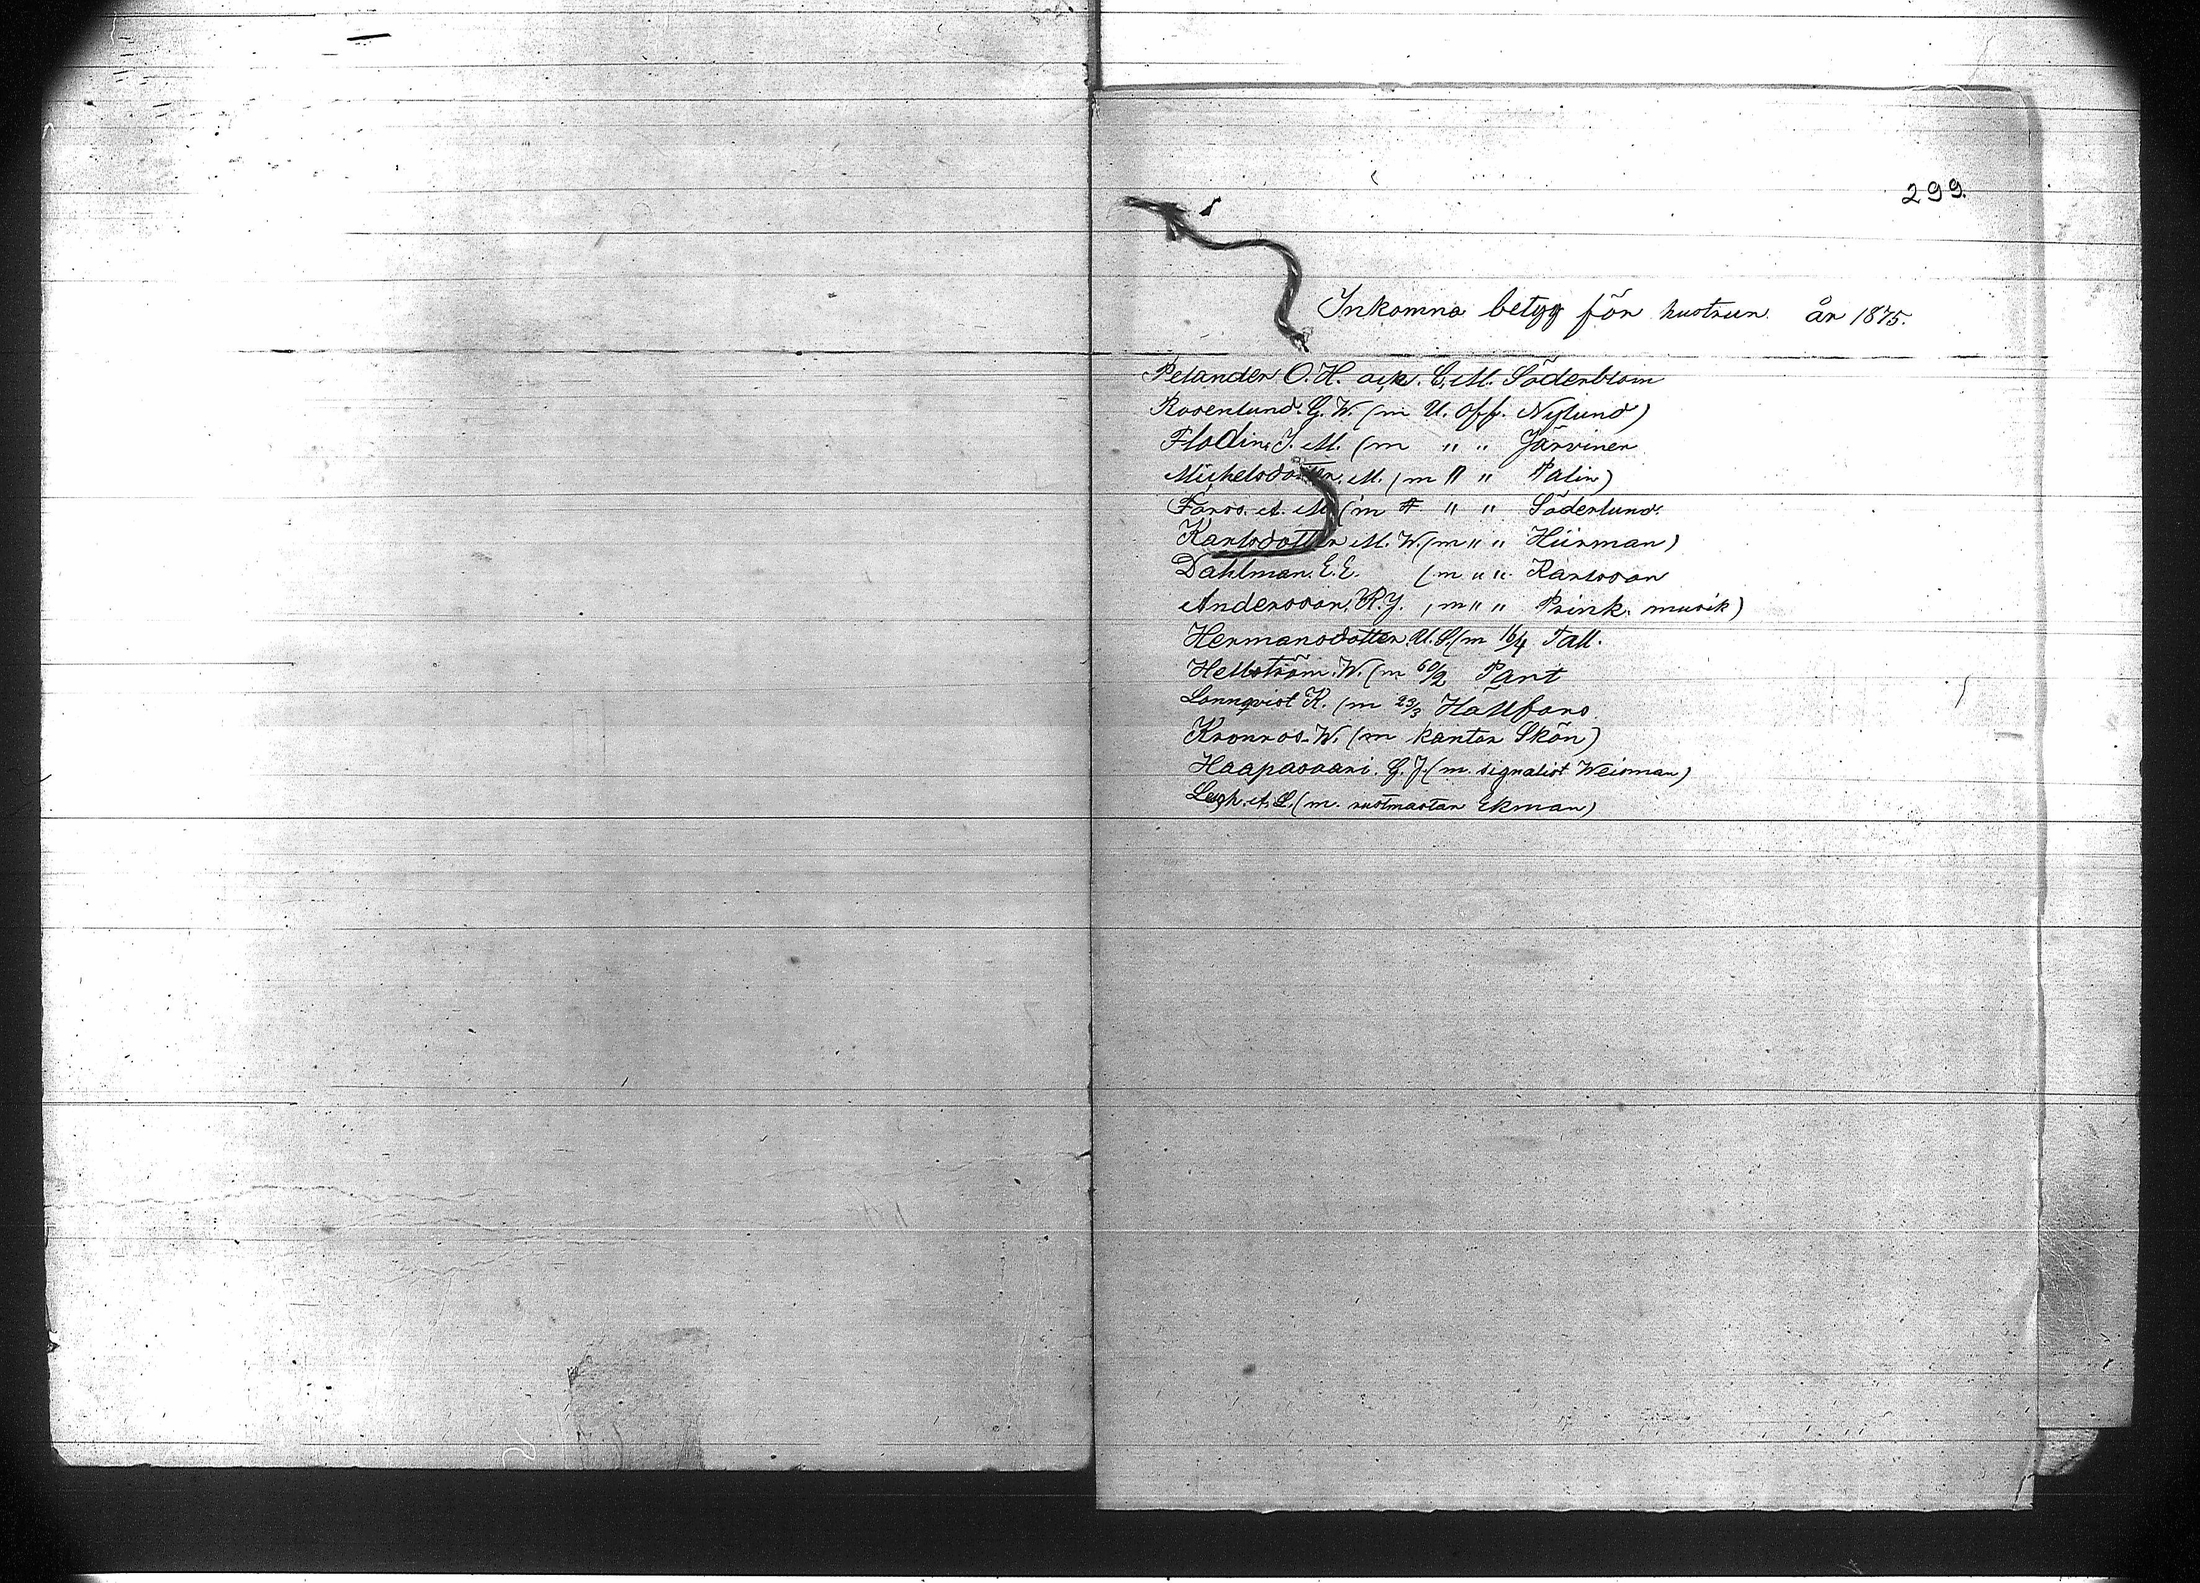 299.
Inkomna betyg för hustrun år 1875.
Pelander O. H. och. C. M. Söderblom
Rosenlund. G. W. (m U. off. Nylund)
Flodin, J. M. (m " " Järvinen
Michelsdotter, M. (m " " Palin)
Färos. A. M (m " " Söderlund.
Karlsdotter M. W. (m " " Hiirman)
Dahlman. E. E. (m " " Karlsson
Andersson, K. J. (m " " Prink. musik)
Hermansdotter. U. S. (m 16/4 Tall.
Hellström. W. (m 60/2 Pant
Lönnqvist K. (m 23/3 Hällfors.
Kronros. W. (m kantor Skön)
Haapasaari. G. J. (m. signalist Weisman)
A. L. (m. rustmästar Ekman)